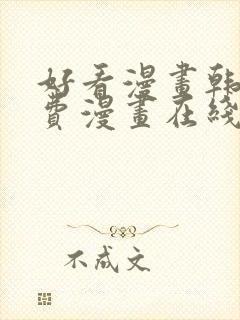 好看漫畫韩
費漫畫在线
不成文